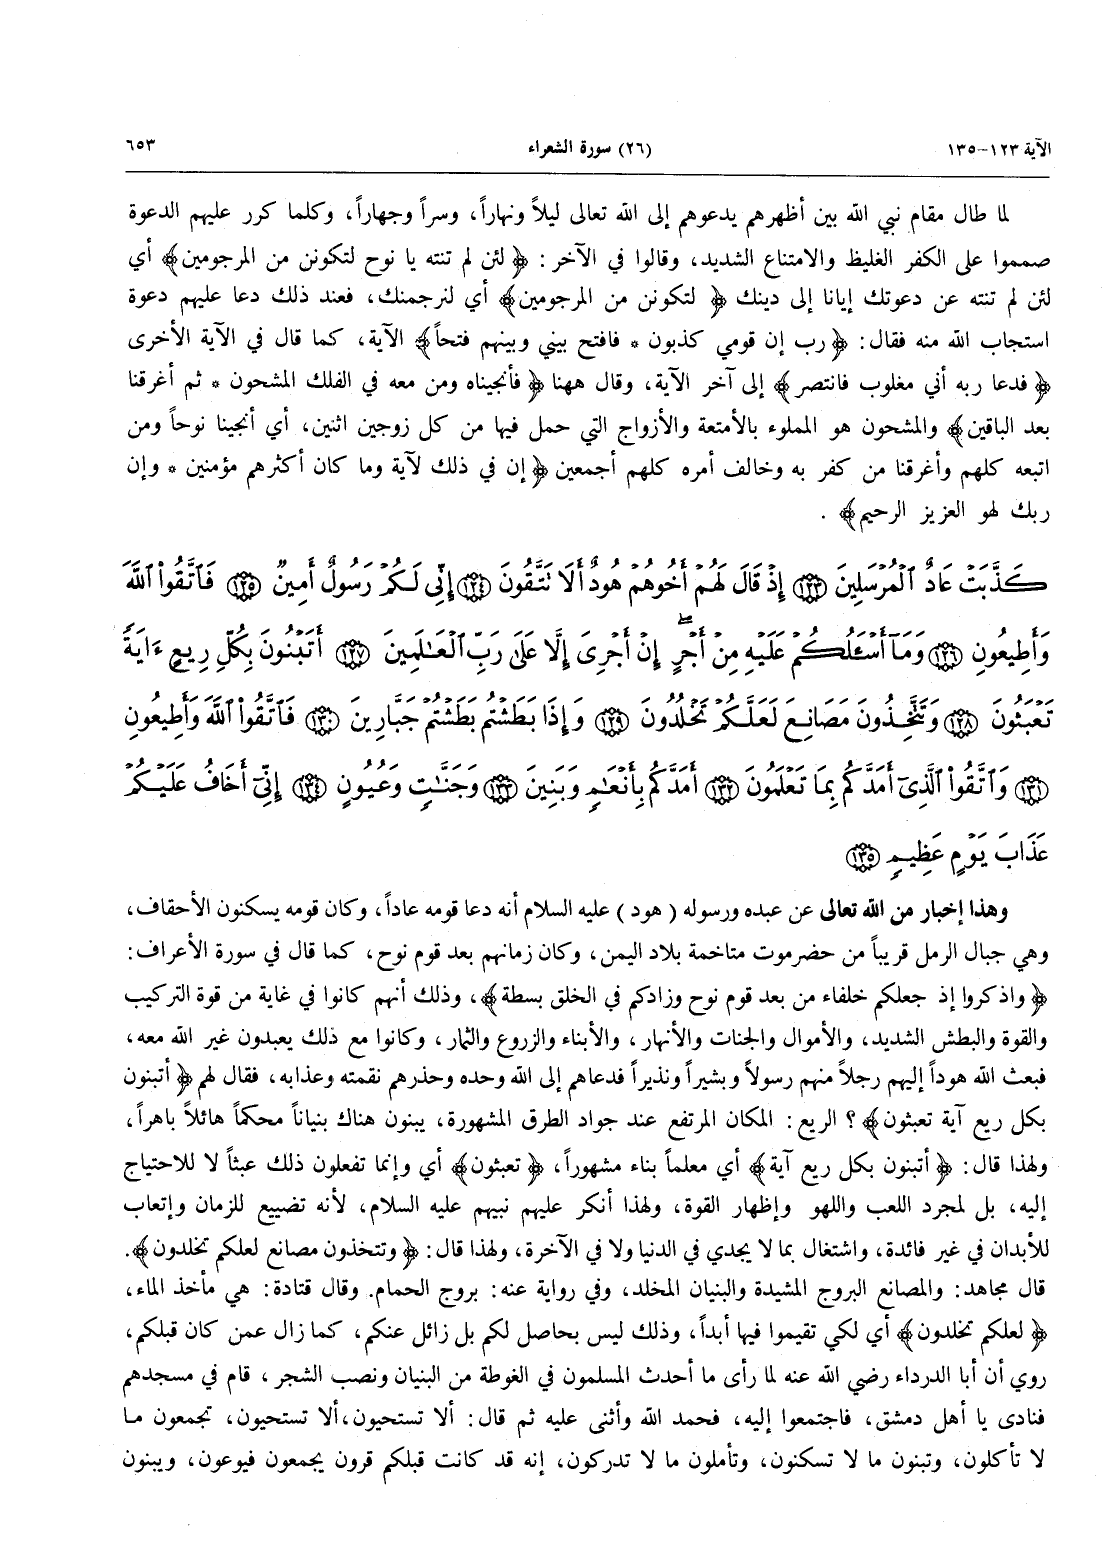 الآية ١٢٣-١٣٥ (٢٦) سورة الشعراء ٦٥٣
لما طال مقام نبي الله بين أظهرهم يدعوهم إلى الله تعالى ليلاً ونهاراً، وسراً وجهاراً، وكلما كرر عليهم الدعوة
صمموا على الكفر الغليظ والامتناع الشديد، وقالوا في الآخر: ﴿لئن لم تنته يا نوح لتكونن من المرجومين﴾ أي
لئن لم تنته عن دعوتك إيانا إلى دينك ﴿لتكونن من المرجومين﴾ أي لنرجمنك، فعند ذلك دعا عليهم دعوة
استجاب الله منه فقال: ﴿رب إن قومي كذبون * فافتح بيني وبينهم فتحاً﴾ الآية، كما قال في الآية الأخرى
﴿فدعا ربه أني مغلوب فانتصر﴾ إلى آخر الآية، وقال ههنا ﴿فأنجيناه ومن معه في الفلك المشحون * ثم أغرقنا
بعد الباقين﴾ والمشحون هو المملوء بالأمتعة والأزواج التي حمل فيها من كل زوجين اثنين، أي أنجينا نوحاً ومن
اتبعه كلهم وأغرقنا من كفر به وخالف أمره كلهم أجمعين ﴿إن في ذلك لآية وما كان أكثرهم مؤمنين * وإن
ربك لهو العزيز الرحيم﴾.
كَذَّبَتْ عَادٌ ٱلْمُرْسَلِينَ ١٢٣ إِذْ قَالَ لَهُمْ أَخُوهُمْ هُودٌ أَلَا تَتَّقُونَ ١٢٤ إِنِّي لَكُمْ رَسُولٌ أَمِينٌ ١٢٥ فَٱتَّقُوا۟ ٱللَّهَ
وَأَطِيعُونِ ١٢٦ وَمَآ أَسْـَٔلُكُمْ عَلَيْهِ مِنْ أَجْرٍ ۖ إِنْ أَجْرِىَ إِلَّا عَلَىٰ رَبِّ ٱلْعَـٰلَمِينَ ١٢٧ أَتَبْنُونَ بِكُلِّ رِيعٍ ءَايَةً
تَعْبَثُونَ ١٢٨ وَتَتَّخِذُونَ مَصَانِعَ لَعَلَّكُمْ تَخْلُدُونَ ١٢٩ وَإِذَا بَطَشْتُم بَطَشْتُمْ جَبَّارِينَ ١٣٠ فَٱتَّقُوا۟ ٱللَّهَ وَأَطِيعُونِ
١٣١ وَٱتَّقُوا۟ ٱلَّذِىٓ أَمَدَّكُم بِمَا تَعْلَمُونَ ١٣٢ أَمَدَّكُم بِأَنْعَـٰمٍ وَبَنِينَ ١٣٣ وَجَنَّـٰتٍ وَعُيُونٍ ١٣٤ إِنِّىٓ أَخَافُ عَلَيْكُمْ
عَذَابَ يَوْمٍ عَظِيمٍ ١٣٥
وهذا إخبار من الله تعالى عن عبده ورسوله (هود) عليه السلام أنه دعا قومه عاداً، وكان قومه يسكنون الأحقاف،
وهي جبال الرمل قريباً من حضرموت متاخمة بلاد اليمن، وكان زمانهم بعد قوم نوح، كما قال في سورة الأعراف:
﴿واذكروا إذ جعلكم خلفاء من بعد قوم نوح وزادكم في الخلق بسطة﴾، وذلك أنهم كانوا في غاية من قوة التركيب
والقوة والبطش الشديد، والأموال والجنات والأنهار، والأبناء والزروع والثمار، وكانوا مع ذلك يعبدون غير الله معه،
فبعث الله هوداً إليهم رجلاً منهم رسولاً وبشيراً ونذيراً فدعاهم إلى الله وحده وحذرهم نقمته وعذابه، فقال لهم ﴿أتبنون
بكل ريع آية تعبثون﴾؟ الريع: المكان المرتفع عند جواد الطرق المشهورة، يبنون هناك بنياناً محكماً هائلاً باهراً،
ولهذا قال: ﴿أتبنون بكل ريع آية﴾ أي معلماً بناء مشهوراً، ﴿تعبثون﴾ أي وإنما تفعلون ذلك عبثاً لا للاحتياج
إليه، بل لمجرد اللعب واللهو وإظهار القوة، ولهذا أنكر عليهم نبيهم عليه السلام، لأنه تضييع للزمان وإتعاب
للأبدان في غير فائدة، واشتغال بما لا يجدي في الدنيا ولا في الآخرة، ولهذا قال: ﴿وتتخذون مصانع لعلكم تخلدون﴾.
قال مجاهد: والمصانع البروج المشيدة والبنيان المخلد، وفي رواية عنه: بروج الحمام. وقال قتادة: هي مأخذ الماء،
﴿لعلكم تخلدون﴾ أي لكي تقيموا فيها أبداً، وذلك ليس بحاصل لكم بل زائل عنكم، كما زال عمن كان قبلكم،
روي أن أبا الدرداء رضي الله عنه لما رأى ما أحدث المسلمون في الغوطة من البنيان ونصب الشجر، قام في مسجدهم
فنادى يا أهل دمشق، فاجتمعوا إليه، فحمد الله وأثنى عليه ثم قال: ألا تستحيون، ألا تستحيون، تجمعون ما
لا تأكلون، وتبنون ما لا تسكنون، وتأملون ما لا تدركون، إنه قد كانت قبلكم قرون يجمعون فيوعون، ويبنون